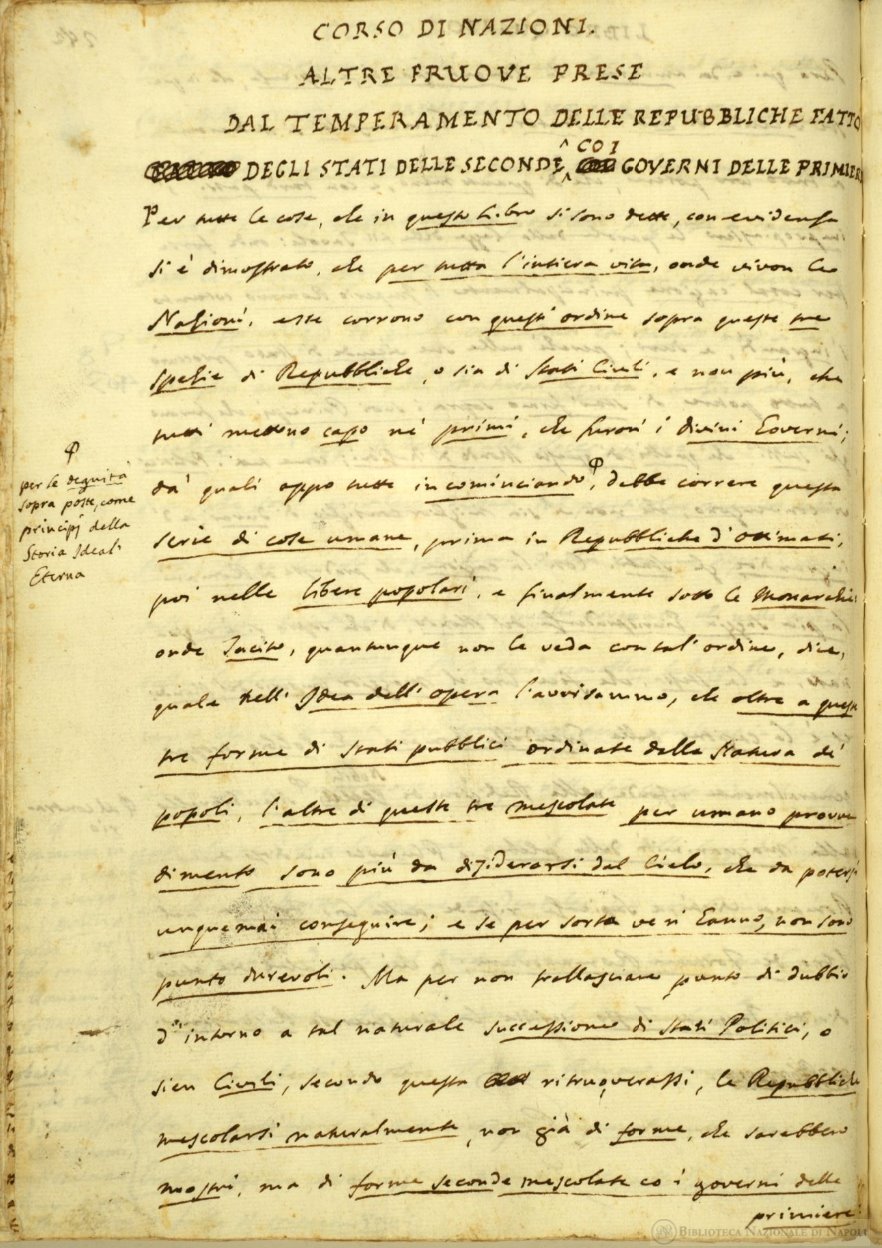 CORSO DI NAZIONI.
ALTRE PRUOVE PRESE
DAL TEMPERAMENTO DELLE REPUBBLICHE FATTO
DEGLI STATI DELLE SECONDE COI GOVERNI DELLE PRIMIERE
Per tutte le cose, che in questo Libro si sono dette, con evidenza
si è dimostrato, che per tutta l'intiera vita, onde vivon le
Nazioni, esse corrono con quest'ordine sopra queste tre
spezie di Repubbliche, o sia di Stati Civili, e non più, che
tutti mettono capo ne' primi, che furon i divini Governi;
da' quali appo tutte incominciando φ, debbe correre questa
serie di cose umane, prima in Repubbliche d'Ottimati,
poi nelle libere popolari, e finalmente sotto le Monarchie:
onde Tacito, quantunque non le veda con tal'ordine, dice,
quale nell'Idea dell'opera l'avvisammo, che oltre a queste
tre forme di Stati pubblici ordinate dalla Natura de'
popoli, l'altre di queste tre mescolate per umano provve
dimento sono più da disiderarsi dal Cielo, che da potersi
unquemai conseguire; e se per sorta ve n'hanno, non sono
punto durevoli. Ma per non trallasciare punto di dubbio
d'intorno a tal naturale successione di Stati Politici, o
sien Civili, secondo questa ritruoverassi, le Repubbliche
mescolarsi naturalmente, non già di forme, che sarebbero
mostri, ma di forme seconde mescolate co i governi delle
primiere:
φ
per le degnità
sopra poste, come
principj della
Storia Ideal'
Eterna
BIBLIOTECA NAZIONALE DI NAPOLI